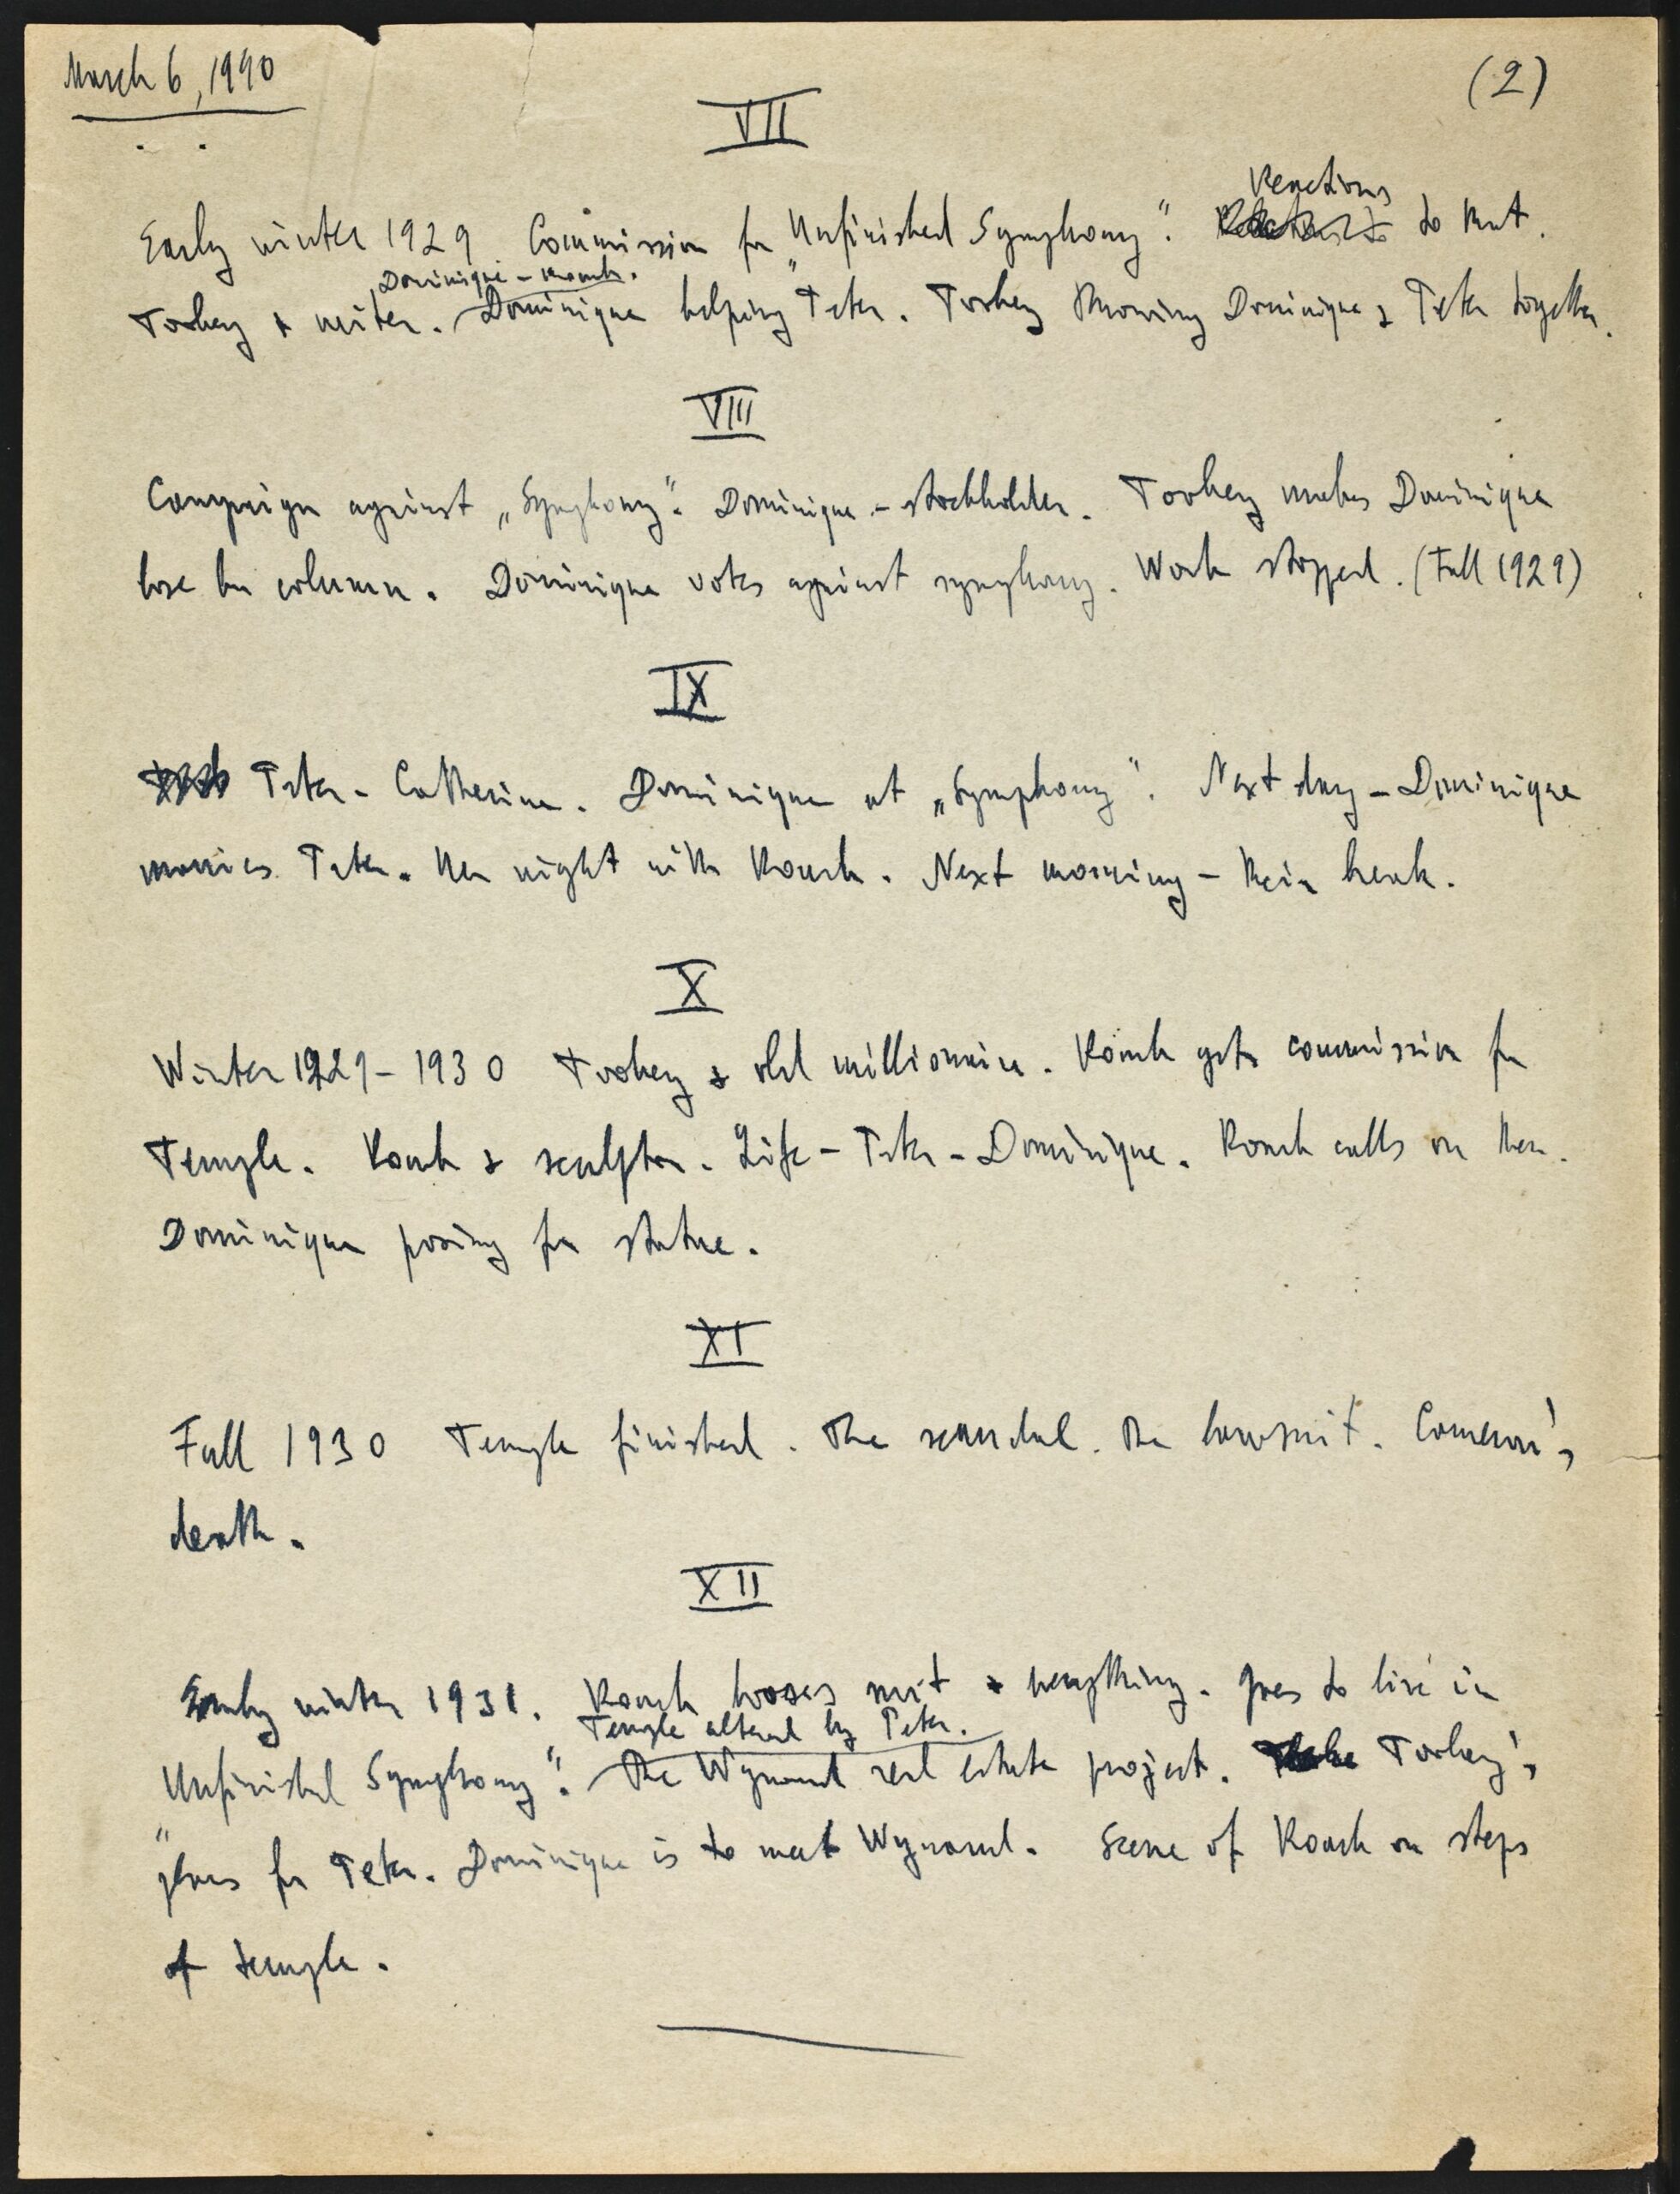 March 6, 1940
(2)
VII
Reactions
Early winter 1929 Commission for „Unfinished Symphony“. to that.
Dominique – Roark.
Toohey & writer. Dominique helping Peter. Toohey throwing Dominique & Peter together.
VIII
Campaign against „Symphony“. Dominique – stockholder. Toohey makes Dominique
lose her column. Dominique votes against symphony. Work stopped. (Fall 1929)
IX
Peter – Catherine. Dominique at „Symphony“. Next day – Dominique
marries Peter. Her night with Roark. Next morning – their break.
X
Winter 1929 – 1930 Toohey & old millionaire. Roark gets commission for
Temple. Roark & sculptor. Life – Peter – Dominique. Roark calls on them.
Dominique posing for statue.
XI
Fall 1930 Temple finished. The scandal. The lawsuit. Cameron's
death.
XII
Early winter 1931. Roark looses suit & everything. Goes to live in
Temple altered by Peter.
„Unfinished Symphony“. The Wynand real estate project. Toohey's
plans for Peter. Dominique is to meet Wynand. Scene of Roark on steps
of temple.